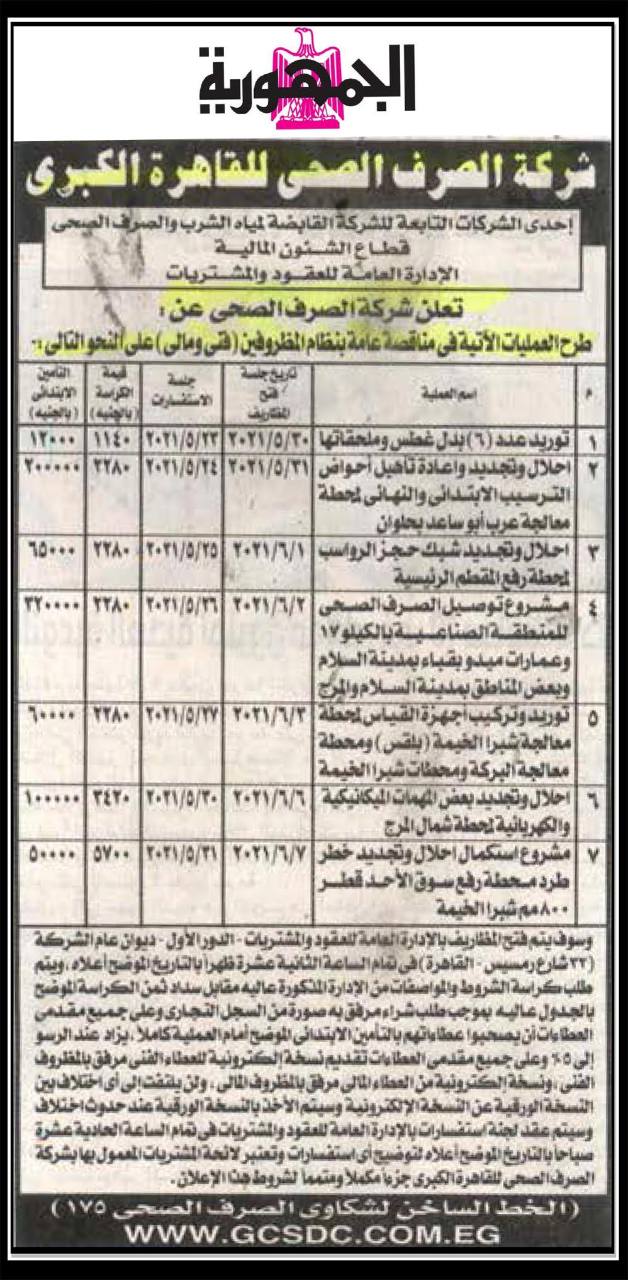 الجمهورية
شركة الصرف الصحى للقاهرة الكبرى
إحدى الشركات التابعة للشركة القابضة لمياه الشرب والصرف الصحى
قطاع الشئون المالية
الإدارة العامة للعقود والمشتريات
تعلن شركة الصرف الصحى عن :
طرح العمليات الآتية فى مناقصة عامة بنظام المظروفين (فنى ومالى) على النحو التالى :-
م اسم العملية تاريخ جلسة فتح المظاريف جلسة الاستفسارات قيمة الكراسة (بالجنيه) التأمين الابتدائى (بالجنيه)
١ توريد عدد (٦) بدل غطس وملحقاتها ٢٠٢١/٥/٣٠ ٢٠٢١/٥/٢٣ ١١٤٠ ١٢٠٠٠
٢ احلال وتجديد واعادة تأهيل أحواض ٢٠٢١/٥/٣١ ٢٠٢١/٥/٢٤ ٢٢٨٠ ٢٠٠٠٠٠
الترسيب الابتدائى والنهائى لمحطة
معالجة عرب أبو ساعد بحلوان
٣ احلال وتجديد شبك حجز الرواسب ٢٠٢١/٦/١ ٢٠٢١/٥/٢٥ ٢٢٨٠ ٦٥٠٠٠
لمحطة رفع المقطم الرئيسية
٤ مشروع توصيل الصرف الصحى ٢٠٢١/٦/٢ ٢٠٢١/٥/٢٦ ٢٢٨٠ ٣٢٠٠٠٠
للمنطقة الصناعية بالكيلو ١٧
وعمارات ميدو بقباء بمدينة السلام
وبعض المناطق بمدينة السلام والمرج
٥ توريد وتركيب أجهزة القياس لمحطة ٢٠٢١/٦/٣ ٢٠٢١/٥/٢٧ ٢٢٨٠ ٦٠٠٠٠
معالجة شبرا الخيمة (بلقس) ومحطة
معالجة البركة ومحطات شبرا الخيمة
٦ احلال وتجديد بعض المهمات الميكانيكية ٢٠٢١/٦/٦ ٢٠٢١/٥/٣٠ ٣٤٢٠ ١٠٠٠٠٠
والكهربائية لمحطة شمال المرج
٧ مشروع استكمال احلال وتجديد خطر ٢٠٢١/٦/٧ ٢٠٢١/٥/٣١ ٥٧٠٠ ٥٠٠٠٠
طرد محطة رفع سوق الأحد قطر
٨٠٠مم شبرا الخيمة
وسوف يتم فتح المظاريف بالإدارة العامة للعقود والمشتريات - الدور الأول - ديوان عام الشركة
(٣٢ شارع رمسيس - القاهرة) فى تمام الساعة الثانية عشرة ظهراً بالتاريخ الموضح أعلاه ، ويتم
طلب كراسة الشروط والمواصفات من الإدارة المذكورة عاليه مقابل سداد ثمن الكراسة الموضح
بالجدول عاليه بموجب طلب شراء مرفق به صورة من السجل التجارى وعلى جميع مقدمى
العطاءات أن يصحبوا عطاءاتهم بالتأمين الابتدائى الموضح أمام العملية كاملاً ، يزاد عند الرسو
إلى ٥٪ وعلى جميع مقدمى العطاءات تقديم نسخة الكترونية للعطاء الفنى مرفق بالمظروف
الفنى ، ونسخة الكترونية من العطاء المالى مرفق بالمظروف المالى ، ولن يلتفت إلى أى اختلاف بين
النسخة الورقية عن النسخة الإلكترونية وسيتم الأخذ بالنسخة الورقية عند حدوث اختلاف
وسيتم عقد لجنة استفسارات بالإدارة العامة للعقود والمشتريات فى تمام الساعة الحادية عشرة
صباحاً بالتاريخ الموضح أعلاه لتوضيح أى استفسارات وتعتبر لائحة المشتريات المعمول بها بشركة
الصرف الصحى للقاهرة الكبرى جزءاً مكملاً ومتمماً لشروط هذا الإعلان.
(الخط الساخن لشكاوى الصرف الصحى ١٧٥)
WWW.GCSDC.COM.EG